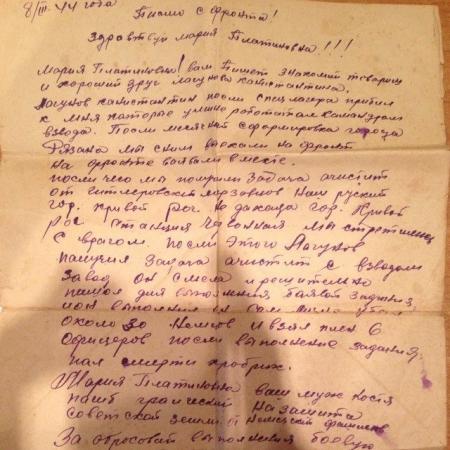 8/III-44 года
Письмо с фронта!
Здравствуй Мария Платиновна!!!
Мария Платиновна! вам пишет знакомий товарищ
и хороший друг Лагунова Канстантина.
Лагунов Канстантин после спец лагеря прибил
к мня которые умино работатал командрам
взвода. После месячной сформировка города
Рязана мы с ним выехали на фронт
На фронте воявали вместе.
После чего мы получили задача ачистит
от гитлеровских мерзавцов наш руский
гор. Кривой рог. Не даходя гор. Кривой
Рог. Станция Червонная мы стретились
с врагом. После этого Лагунов
палучил задача ачистит с взводом
Завод он смела и решительно
пашол для выполнения баявой задания,
и он выполнил и сам лично убил
около 30 немцов и взял плен 6
Офицеров после выполнение задания,
пал смертю храбрих.
Мария Платиновна ваш муж Костя
пагиб гроический На защита
Советской земли от Немецких фашистов
За образовой выполнения боевую